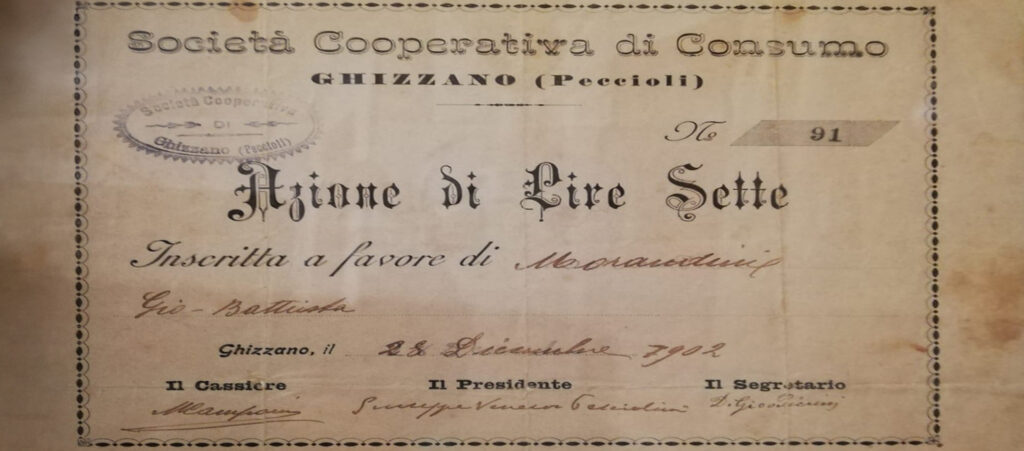 Società Cooperativa di Consumo
GHIZZANO (Peccioli)
Società Cooperativa
DI
Ghizzano (Peccioli)
N 91
Azione di Lire Sette
Inscritta a favore di Morandini
Gio-Battista
Ghizzano, il 28 Dicembre 1902
Il Cassiere Il Presidente Il Segretario
Giuseppe